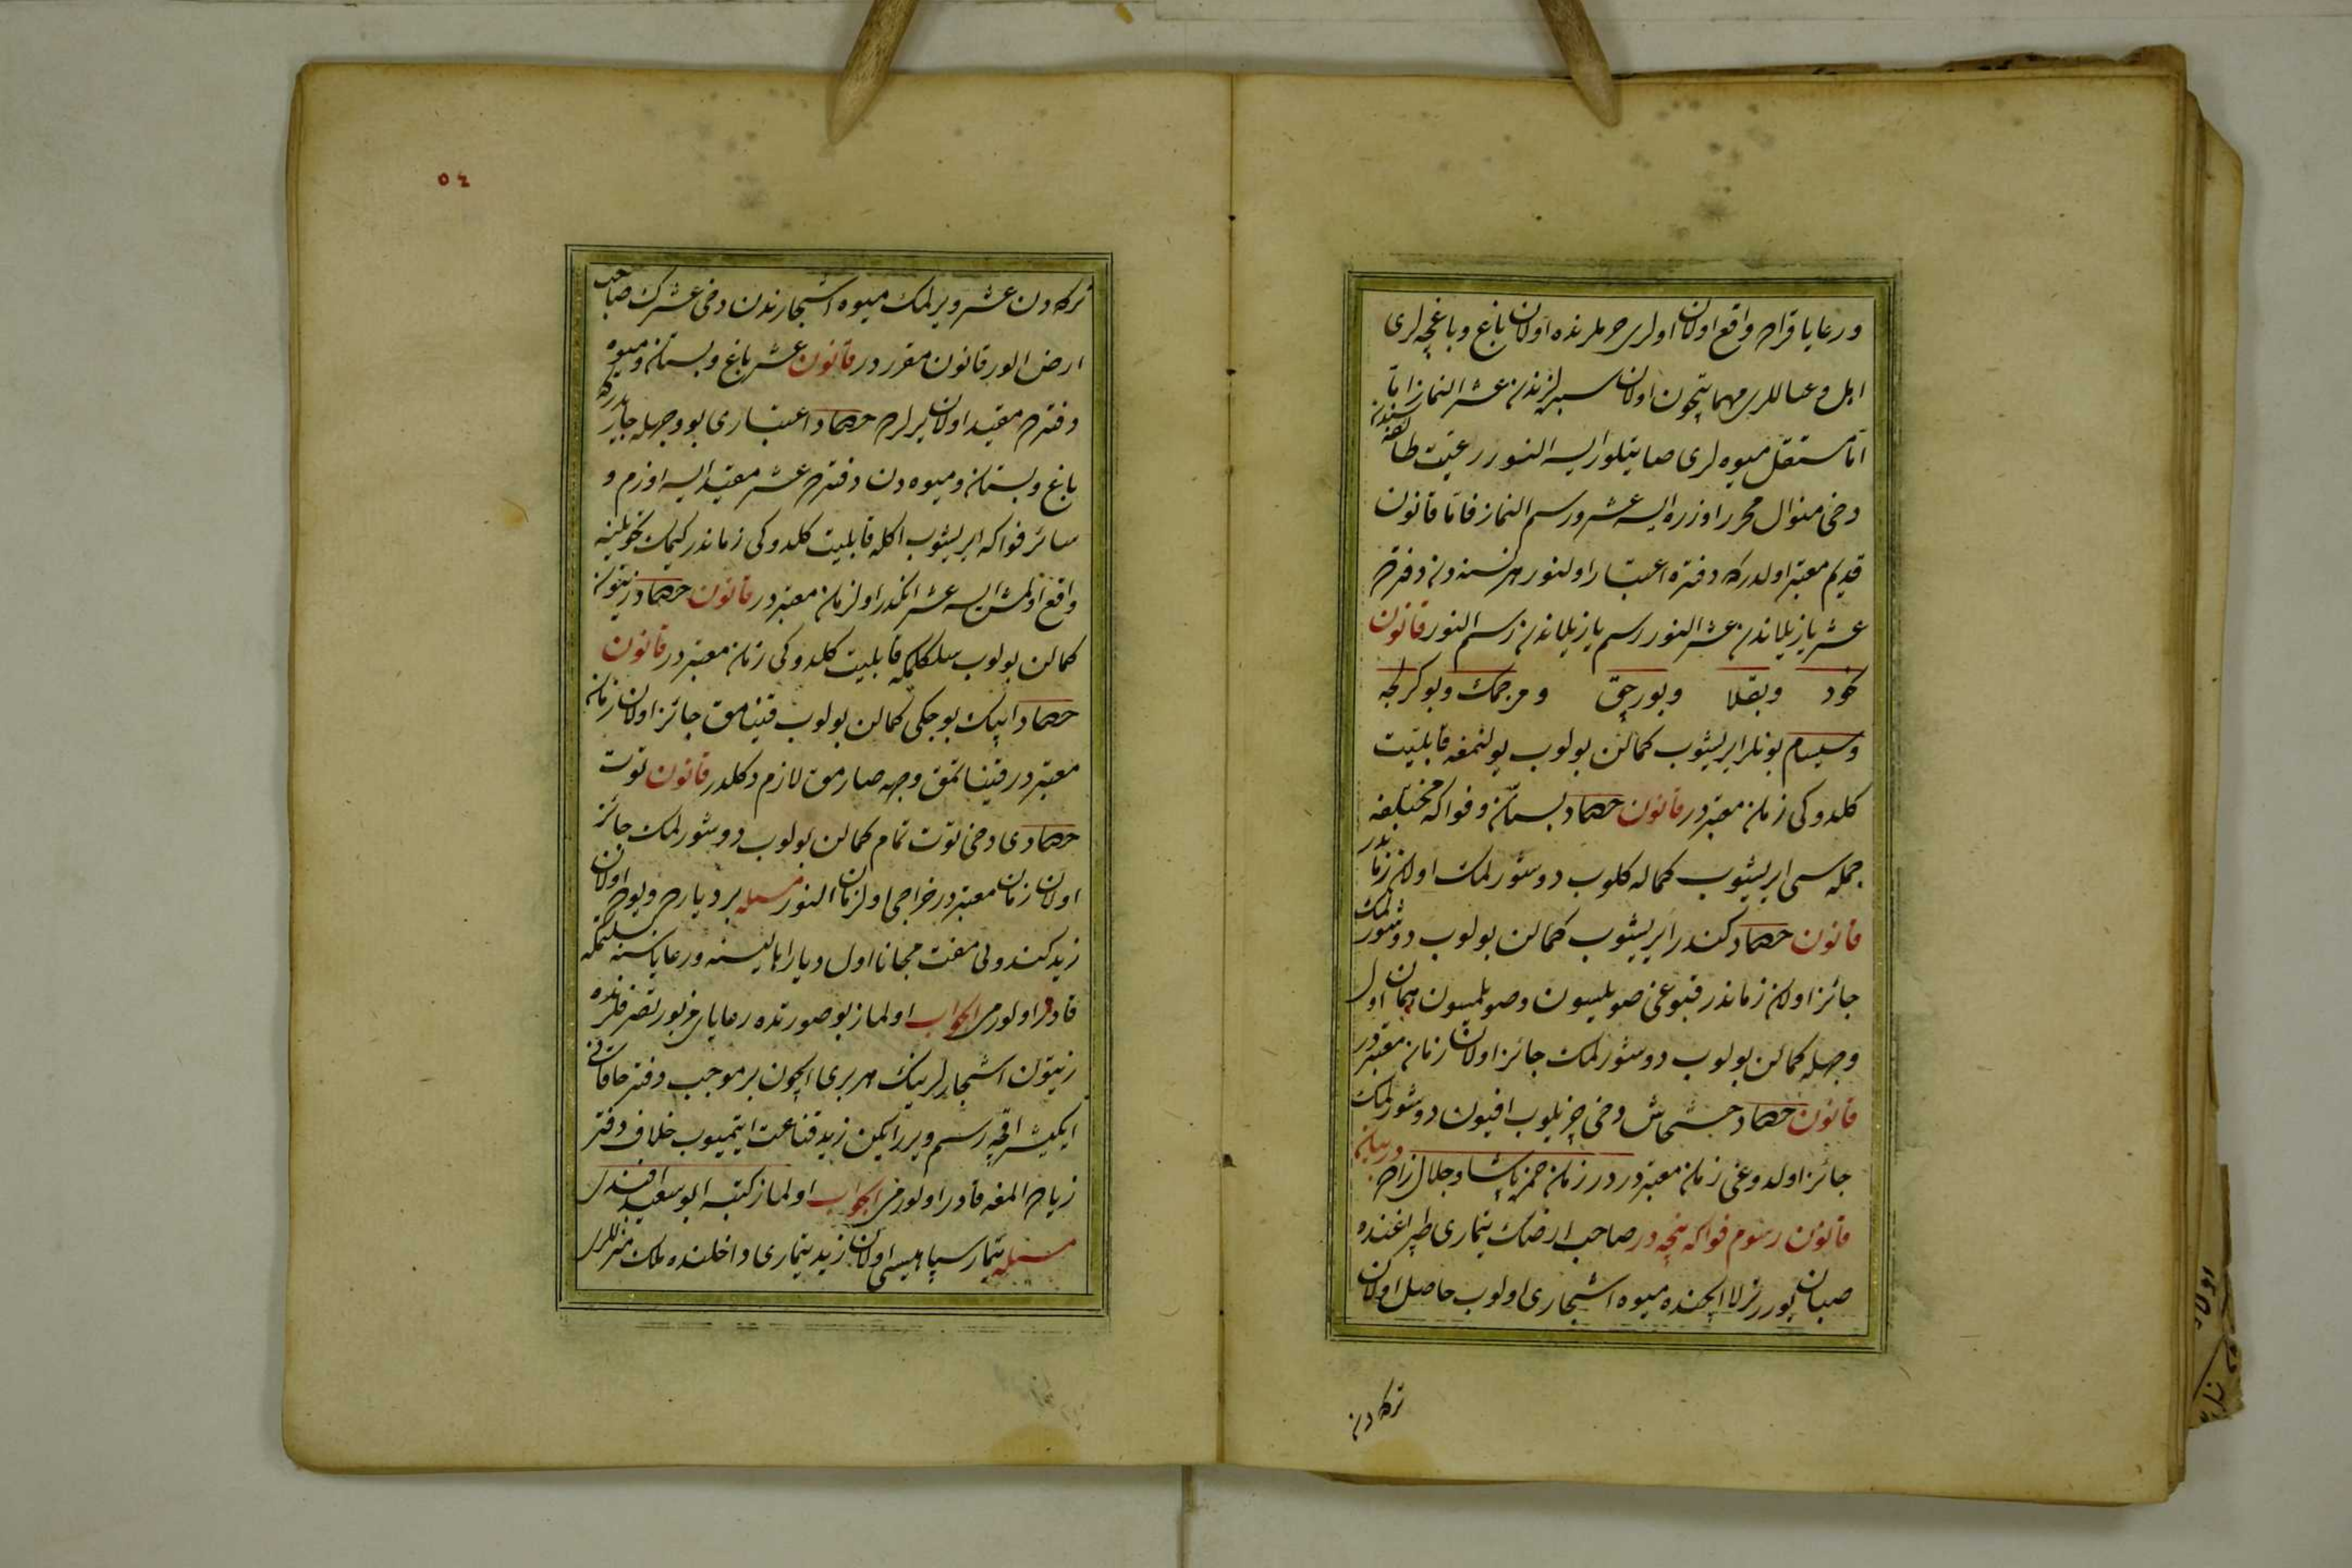 ورعایا قراده واقع اولان اولری حرملرنده اولان باغ و باغچه لری
اهل و عیاللری مهماتیچون اولان سبزلرندن عشر النماز اما
اما مستقل میوه لری صاتیلور ایسه النور رعیت طائفه سندن
دخی منوال محرر اوزره ایسه عشر و رسم النماز فاما قانون
قدیم معتبر اولدرکه دفتره اعتبار اولنور هر نسنه دن دفترده
عشر یازیلاندن عشر النور رسم یازیلاندن رسم النور قانون
نخود و بقلا و بورچق و مرجمك و بوکرلجه
و سیسام بونلر ایریشوب کمالن بولوب یولنمغه قابلیت
کلدوکی زمان معتبردر قانون حصاد بستان و فواکه مختلفه
جمله سی ایریشوب کماله کلوب دوشورلمك اولان زماندر
قانون حصاد کندر ایریشوب کمالن بولوب دوشورلمك
جائز اولان زماندر قبوغی صویلسون و صویلمسون همان اول
وجهله کمالن بولوب دوشورلمك جائز اولان زمان معتبردر
قانون حصاد خشخاش دخی چزیلوب افیون دوشورلمك
جائز اولدوغی زمان معتبردر در زمان حمزه پاشا و جلال زاده در بیان
قانون رسوم فواکه نیجه در صاحب ارضك تیماری طپراغنده
صبان یورر ترلا ایچنده میوه اشجاری اولوب حاصل اولان
ترکه دن
٥٤
ترکه دن عشر ویرلمك میوه اشجارندن دخی عشرك صاحب
ارض الور قانون مقرر در قانون عشر باغ و بستان و میوه
دفترده مقید اولان یرلرده حصاد اعتباری بو وجهله جاریدرکه
باغ و بستان و میوه دن دفترده عشر مقید ایسه اوزم و
سائر فواکه ایریشوب اکله قابلیت کلدوکی زماندر کیمك تحویلینه
واقع اولمش ایسه عشر انکدر اول زمان معتبردر قانون حصاد زیتون
کمالن بولوب سلکلمکه قابلیت کلدوکی زمان معتبردر قانون
حصاد ایپك بوجکی کمالن بولوب قیناموق جائز اولان زمان
معتبردر قیناتمق وجه صارموق لازم دکلدر قانون توت
حصادی دخی توت تمام کمالن بولوب دوشورلمك جائز
اولان زمان معتبردر خراجی اول زمان النور مسئله بر دیارده ویوده اولان
زید کندولی مفت مجانا اول دیار اهالیسنه و رعایاسنه سلکتمکه
قادر اولورمی الجواب اولماز بو صورتده رعایای مزبور تصرفلرنده
زیتون اشجارلرینك هر بری ایچون بر موجب دفتر خاقانی
ایکیشر اقچه رسم ویررایکن زید قناعت ایتمیوب خلاف دفتر
زیاده المغه قادر اولورمی الجواب اولماز کتبه ابو سعید افندی
مسئله تیمار سپاهیسی اولان زید تیماری داخلنده ملك منزللری